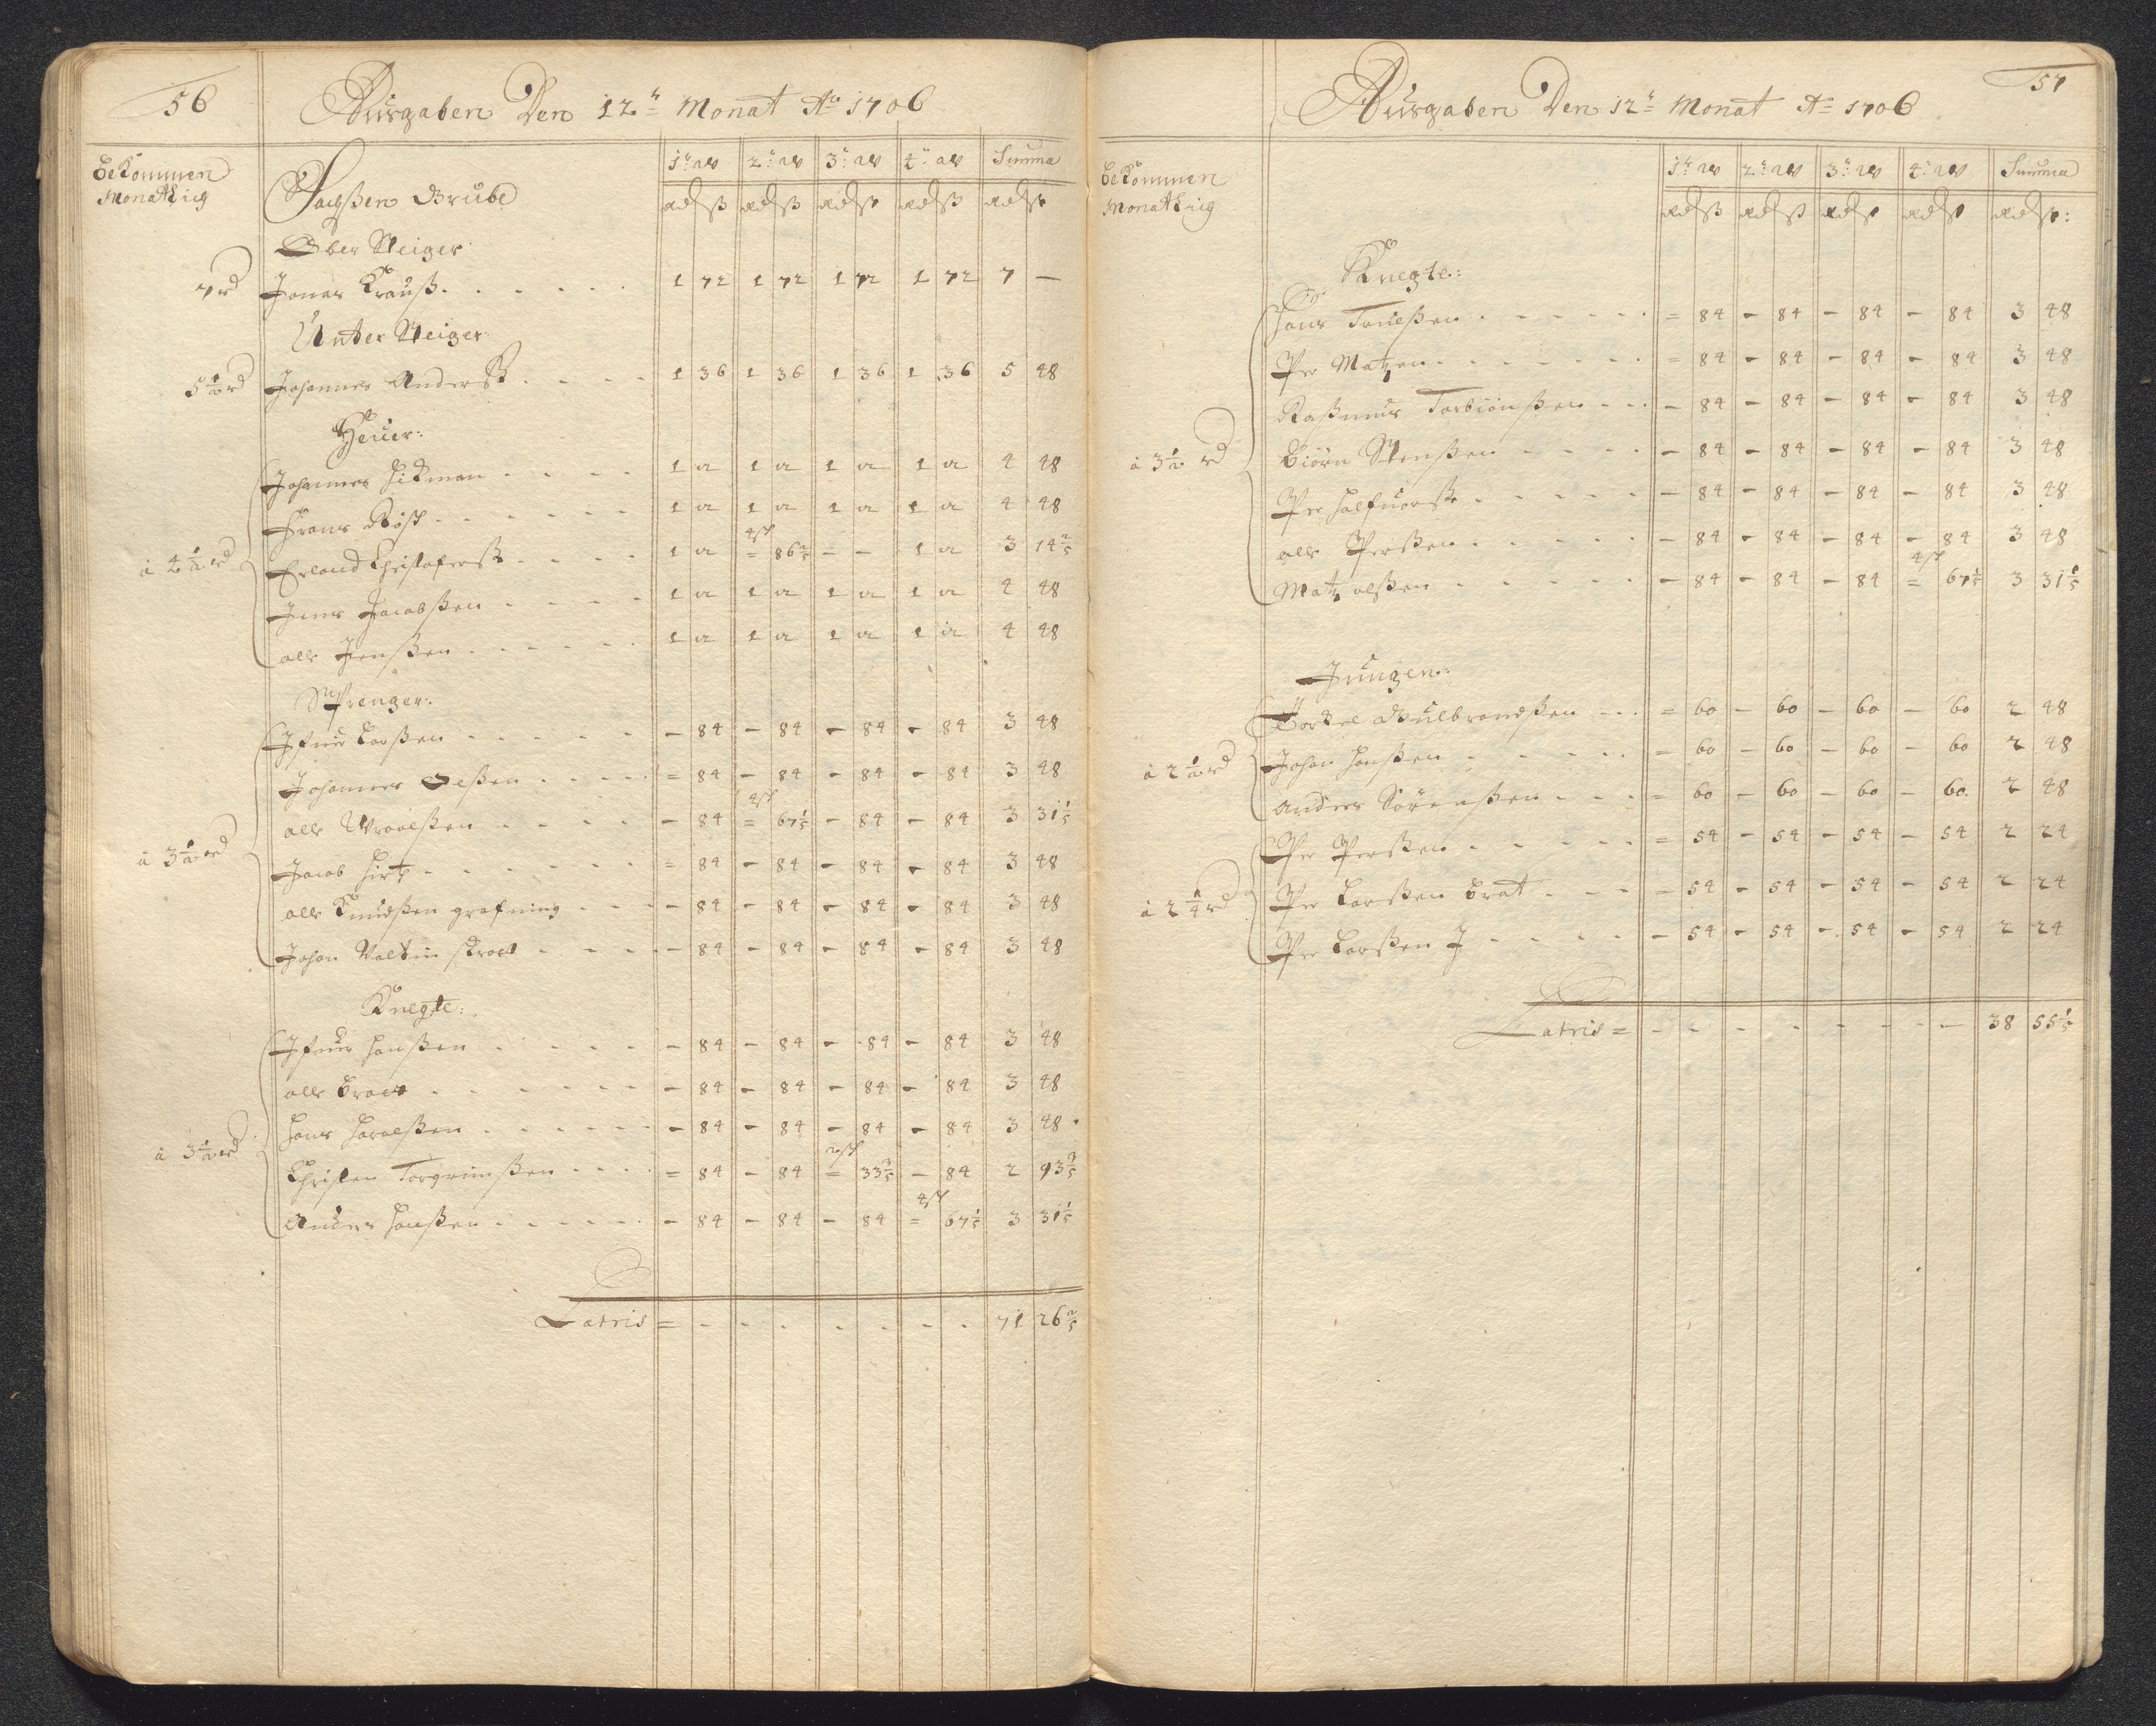 56
Ausgaben Den 12ⁿ Monat Aº 1706
Bekommen
Monatlig
Sachßen Grube
1ⁿ: aw 2ⁿ: aw 3ⁿ: aw 4ⁿ: aw Summa
rd ß rd ß rd ß rd ß rd ß
Ober Steiger
7 rd Jonas Krauß 1 72 1 72 1 72 1 72 7 —
Unter Steiger
5½ rd Johannes Anderß 1 36 1 36 1 36 1 36 5 48
Heuer:
Johannes Hickman 1 12 1 12 1 12 1 12 4 48
Frans Rösch 1 12 1 12 1 12 1 12 4 48
à 4½ rd Erland Christoferß 1 12 4 sch = 86 2/5 - - 1 12 3 14 2/5
Jens Jacobßen 1 12 1 12 1 12 1 12 4 48
olle Jenßen 1 12 1 12 1 12 1 12 4 48
Sprenger:
Ifuer Larßen - 84 - 84 - 84 - 84 3 48
Johannes Oelßen = 84 - 84 - 84 - 84 3 48
olle Wroolßen - 84 4 sch = 67 1/5 - 84 - 84 3 31 1/5
à 3½ rd Jacob Hirtz = 84 - 84 - 84 - 84 3 48
olle Knudßen grafning - 84 - 84 - 84 - 84 3 48
Johan Valtin - 84 - 84 - 84 - 84 3 48
Knegte:
Ifuer Hanßen - 84 - 84 - 84 - 84 3 48
olle - 84 - 84 - 84 - 84 3 48
Hans Harolßen - 84 - 84 - 84 - 84 3 48
à 3½ rd Christen Torgrimßen = 84 - 84 = 33 3/5 - 84 2 93 3/5
Anders Hanßen - 84 - 84 - 84 4 sch = 67 1/5 3 31 1/5
Latris = - - - - - - - 71 26 2/5
57
Ausgaben Den 12ⁿ Monat Aº 1706
Bekommen
Monatlig
1ⁿ: aw 2ⁿ: aw 3ⁿ: aw 4ⁿ: aw Summa
rd ß rd ß rd ß rd ß rd ß:
Knegte:
Hans Truelßen = 84 - 84 - 84 - 84 3 48
Per Matzen = 84 - 84 - 84 - 84 3 48
Raßmus Torbiönßen - 84 - 84 - 84 - 84 3 48
à 3½ rd Biörn Stenßen - 84 - 84 - 84 - 84 3 48
Per Halfuorß - 84 - 84 - 84 - 84 3 48
olle Perßen - 84 - 84 - 84 - 84 3 48
Matz olßen - 84 - 84 - 84 4 sch = 67 1/5 3 31 1/5
Jungen:
Törkel Gulbrandßen = 60 - 60 - 60 - 60 2 48
à 2½ rd Johan Hanßen = 60 - 60 - 60 - 60 2 48
Anders Sörenßen = 60 - 60 - 60 - 60 2 48
Per Perßen = 54 - 54 - 54 - 54 2 24
à 2¼ rd Per Larßen Brat - 54 - 54 - 54 - 54 2 24
Per Larßen J - 54 - 54 - 54 - 54 2 24
Latris = - - - - - - - - 38 55 1/5